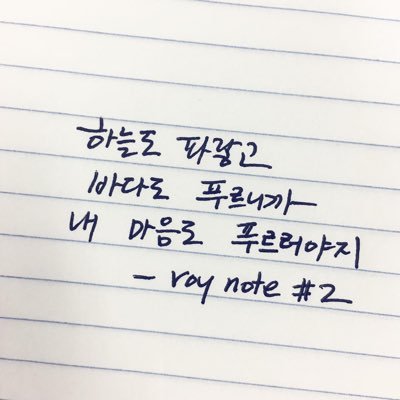 하늘도 파랗고
바다도 푸르니까
내 마음도 푸르러야지
- roy note #2